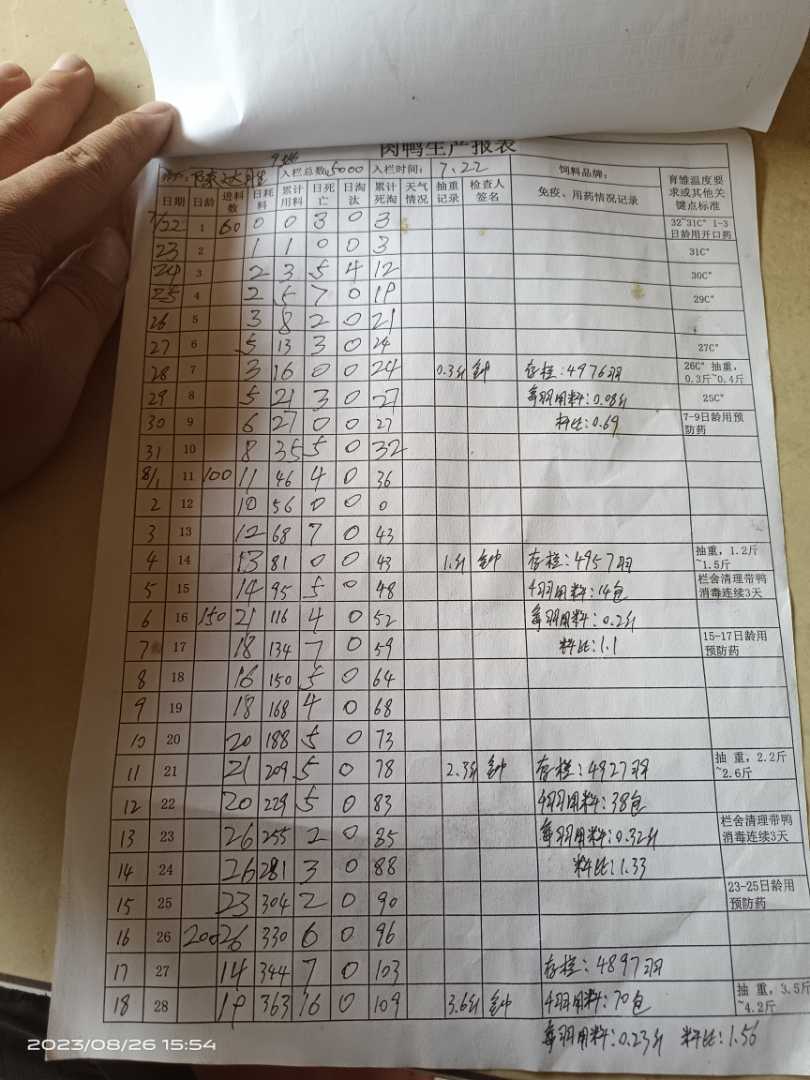 肉鸭生产报表
入栏总数 5000 入栏时间: 7.22 饲料品牌:
日期 日龄 进料数 日耗料 累计用料 日死亡 日淘汰 累计死淘 天气情况 抽重记录 检查人签名 免疫、用药情况记录 育雏温度要求或其他关键点标准
7/22 1 60 0 0 3 0 3 32~31C° 1-3日龄用开口药
23 2 1 1 0 0 3 31C°
24 3 2 3 5 4 12 30C°
25 4 2 5 7 0 19 29C°
26 5 3 8 2 0 21
27 6 5 13 3 0 24 27C°
28 7 3 16 0 0 24 0.3斤 存栏:4976羽 26C° 抽重,0.3斤~0.4斤
29 8 5 21 3 0 27 每羽用料:0.08斤 25C°
30 9 6 27 0 0 27 料比:0.69 7-9日龄用预防药
31 10 8 35 5 0 32
8/1 11 100 11 46 4 0 36
2 12 10 56 0 0 0
3 13 12 68 7 0 43
4 14 13 81 0 0 43 1.1斤 存栏:4957羽 抽重,1.2斤~1.5斤
5 15 14 95 5 0 48 用料:14包 栏舍清理带鸭消毒连续3天
6 16 150 21 116 4 0 52 每羽用料:0.2斤
7 17 18 134 7 0 59 料比:1.1 15-17日龄用预防药
8 18 16 150 5 0 64
9 19 18 168 4 0 68
10 20 20 188 5 0 73
11 21 21 209 5 0 78 2.3斤 存栏:4927羽 抽重,2.2斤~2.6斤
12 22 20 229 5 0 83 用料:38包
13 23 26 255 2 0 85 每羽用料:0.32斤 栏舍清理带鸭消毒连续3天
14 24 26 281 3 0 88 料比:1.33
15 25 23 304 2 0 90 23-25日龄用预防药
16 26 200 26 330 6 0 96
17 27 14 344 7 0 103 存栏:4897羽
18 28 19 363 16 0 109 3.6斤 用料:70包 抽重,3.5斤~4.2斤
每羽用料:0.23斤 料比:1.56
2023/08/26 15:54